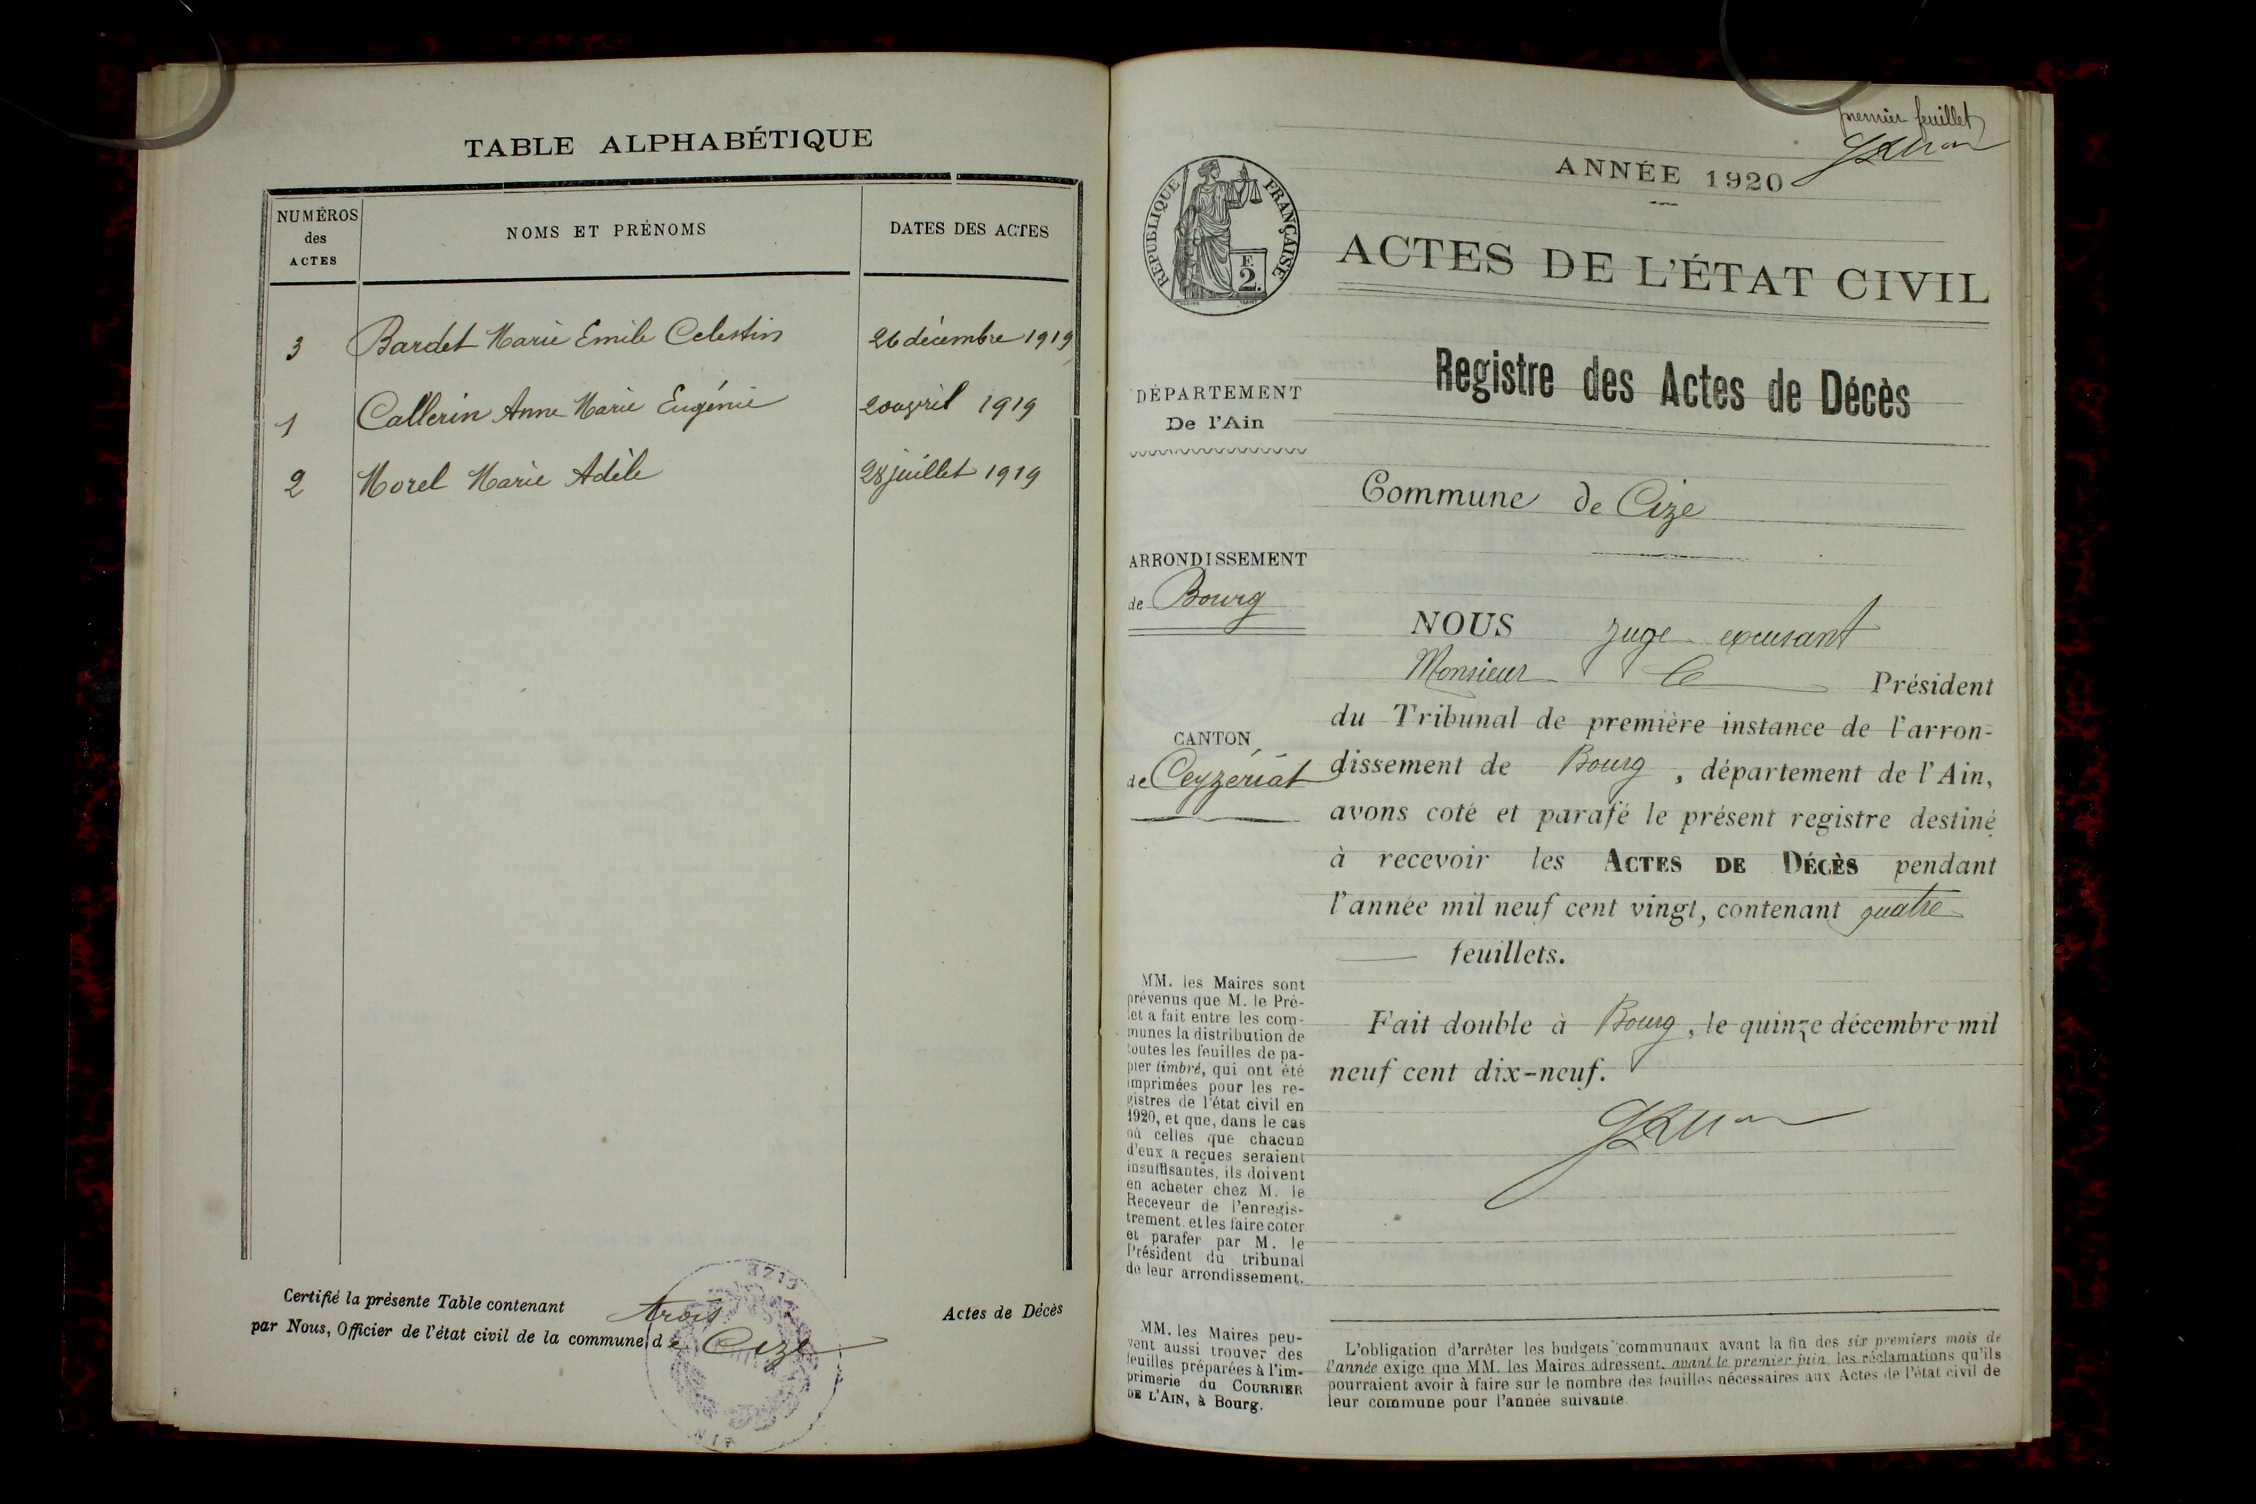 TABLE ALPHABÉTIQUE
NUMÉROS des ACTES
NOMS ET PRÉNOMS
DATES DES ACTES
3 Bardet Marie Emile Celestin 26 décembre 1919
1 Callerin Anne Marie Eugénie 20 avril 1919
2 Morel Marie Adèle 28 juillet 1919
Certifié la présente Table contenant trois Actes de Décès
par Nous, Officier de l'état civil de la commune de Cize
CIZE
AIN
premier feuillet
ANNÉE 1920
RÉPUBLIQUE FRANÇAISE
F.
2.
ACTES DE L'ÉTAT CIVIL
Registre des Actes de Décès
DÉPARTEMENT
De l'Ain
Commune de Cize
ARRONDISSEMENT
de Bourg
CANTON
de Ceyzériat
NOUS juge excusant
Monsieur le Président
du Tribunal de première instance de l'arron-
dissement de Bourg, département de l'Ain,
avons coté et parafé le présent registre destiné
à recevoir les ACTES DE DÉCÈS pendant
l'année mil neuf cent vingt, contenant quatre
feuillets.
Fait double à Bourg, le quinze décembre mil
neuf cent dix-neuf.
MM. les Maires sont
prévenus que M. le Pré-
fet a fait entre les com-
munes la distribution de
toutes les feuilles de pa-
pier timbré, qui ont été
imprimées pour les re-
gistres de l'état civil en
1920, et que, dans le cas
où celles que chacun
d'eux a reçues seraient
insuffisantes, ils doivent
en acheter chez M. le
Receveur de l'enregis-
trement et les faire coter
et parafer par M. le
Président du tribunal
de leur arrondissement.
MM. les Maires peu-
vent aussi trouver des
feuilles préparées à l'im-
primerie du COURRIER
DE L'AIN, à Bourg.
L'obligation d'arrêter les budgets communaux avant la fin des six premiers mois de
l'année exige que MM. les Maires adressent, avant le premier juin, les réclamations qu'ils
pourraient avoir à faire sur le nombre des feuilles nécessaires aux Actes de l'état civil de
leur commune pour l'année suivante.